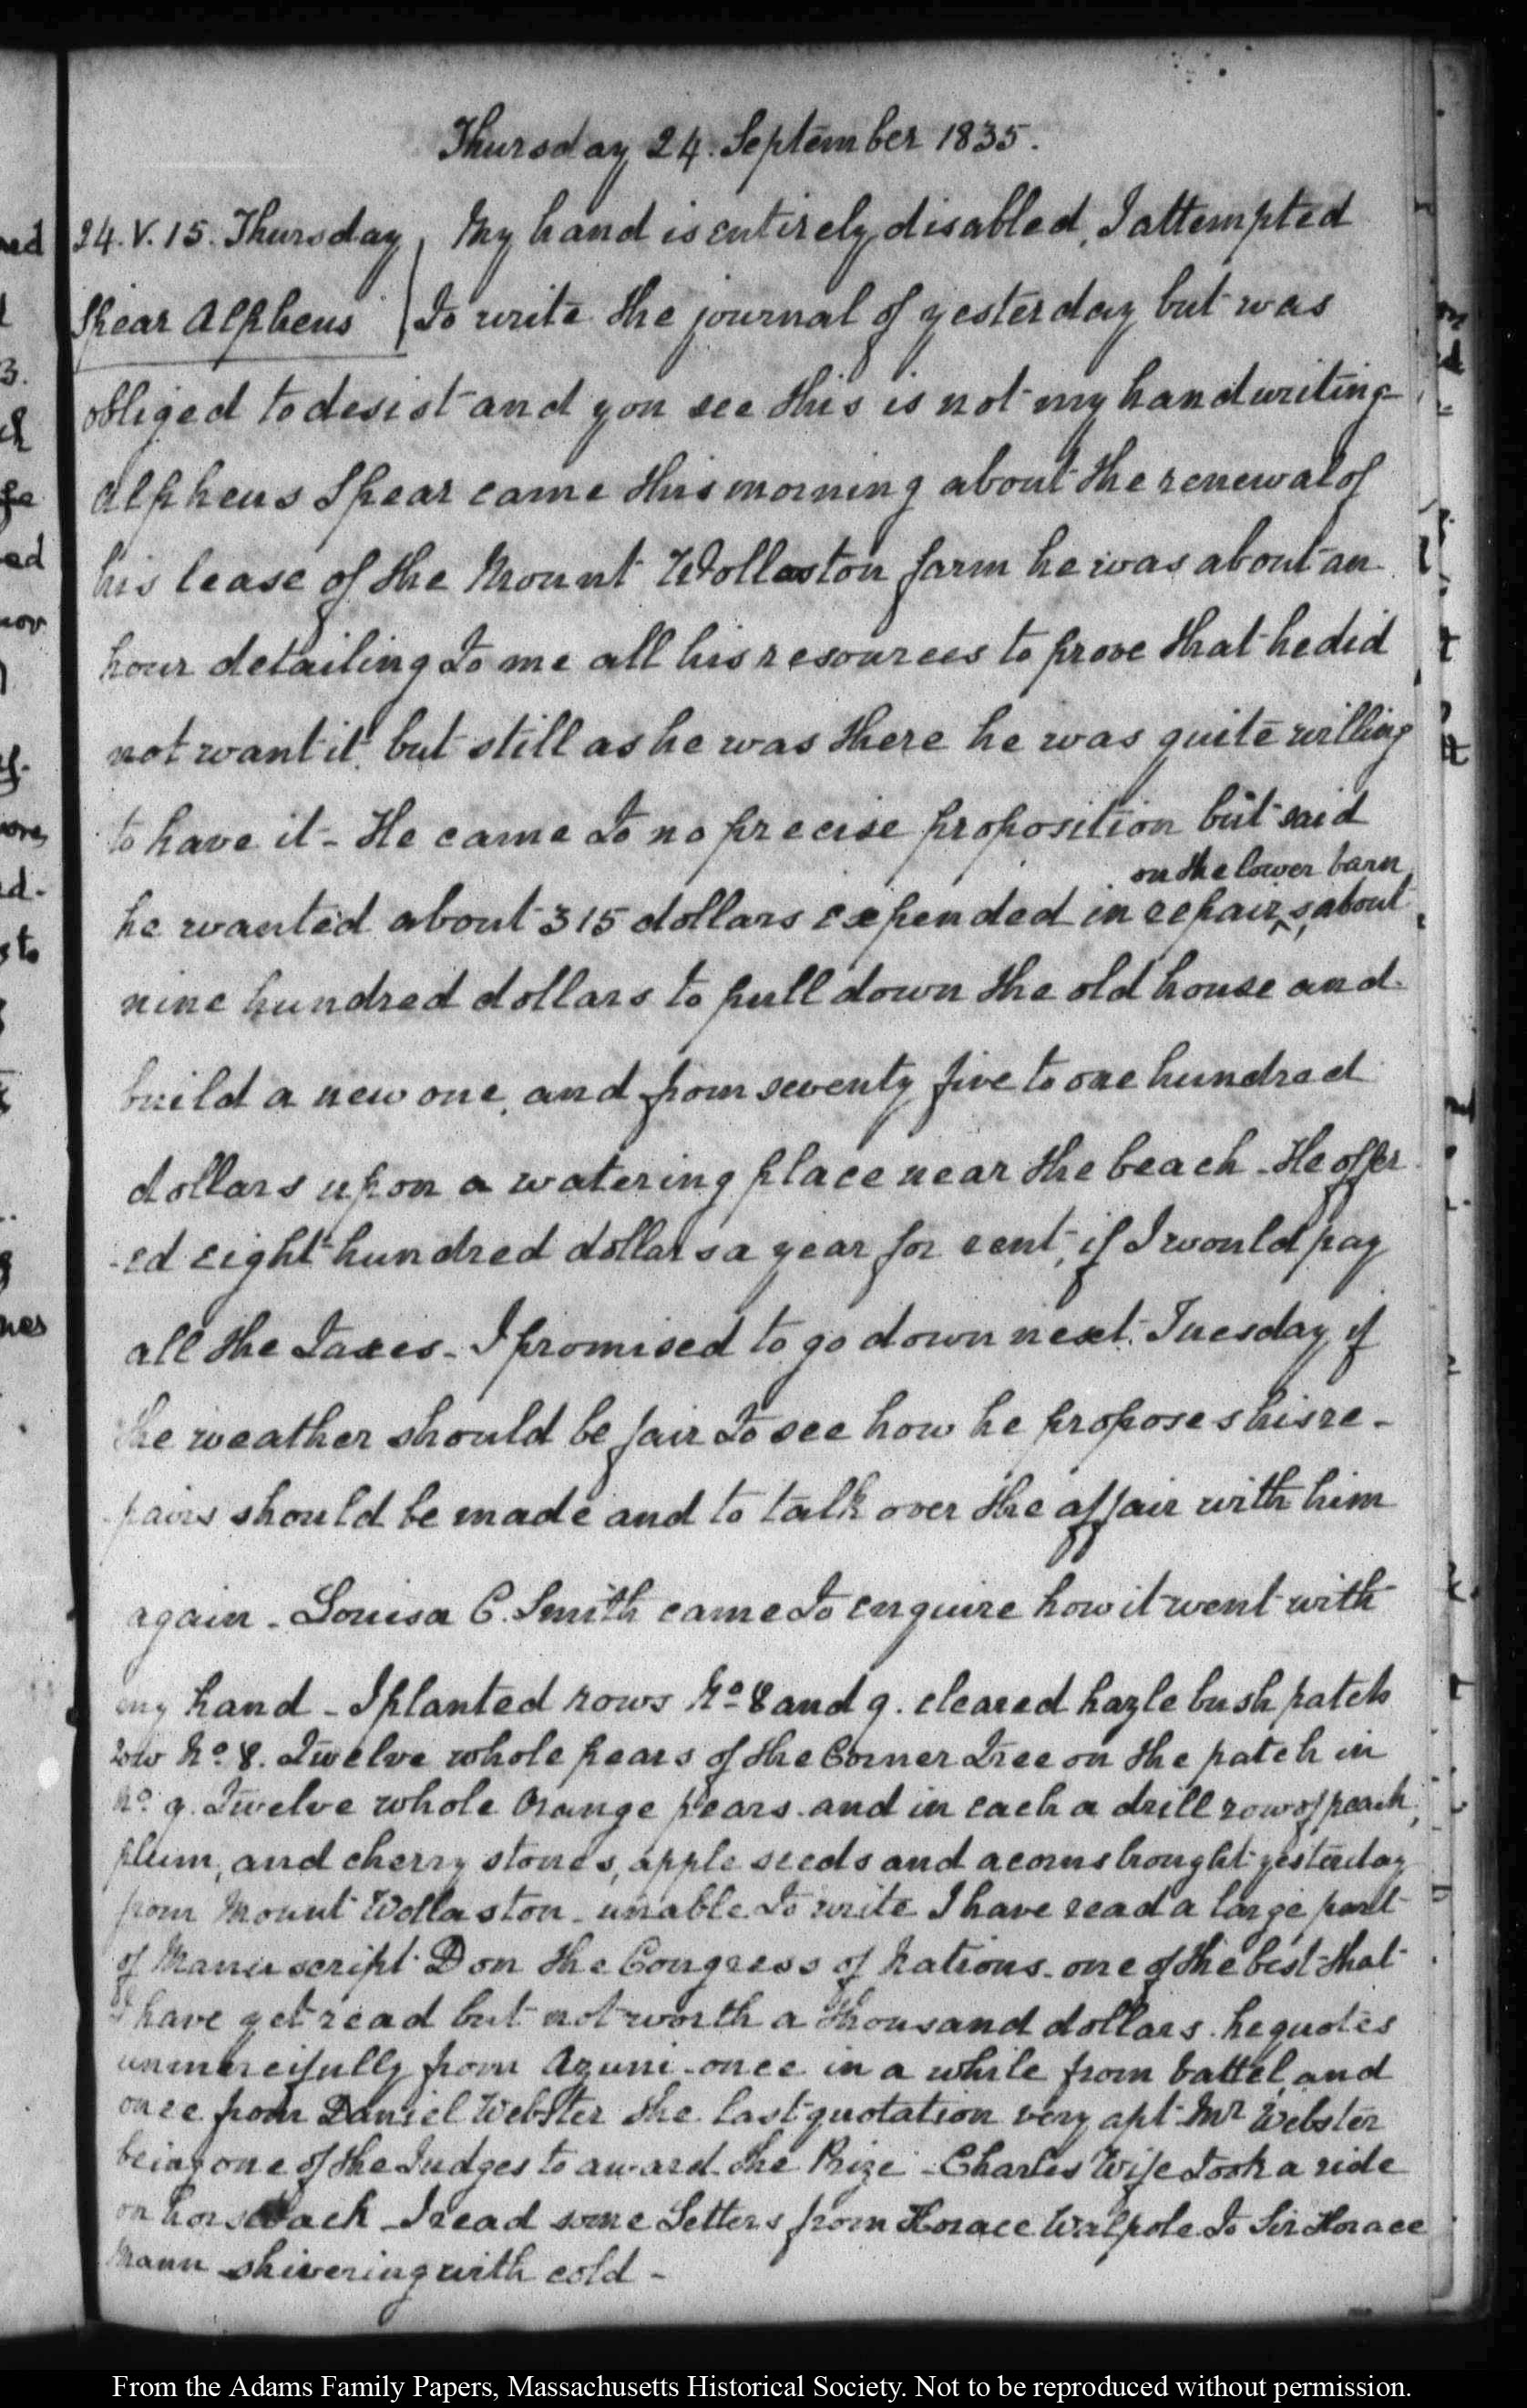 Thursday 24. September 1835.
24. V. 15. Thursday
Spear Alpheus
My hand is entirely disabled, I attempted
to write the journal of yesterday but was
obliged to desist and you see this is not my handwriting
Alpheus Spear came this morning about the renewal of
his lease of the Mount Wollaston farm he was about an
hour detailing to me all his resources to prove that he did
not want it, but still as he was there he was quite willing
to have it - He came to no precise proposition but said
on the lower barn
he wanted about 315 dollars expended in repairs, about
nine hundred dollars to pull down the old house and
build a new one, and from seventy five to one hundred
dollars upon a watering place near the beach - He offer
-ed eight hundred dollars a year for rent, if I would pay
all the taxes - I promised to go down next Tuesday, if
the weather should be fair to see how he proposes his re-
pairs should be made and to talk over the affair with him
again - Louisa C. Smith came to enquire how it went with
my hand - I planted rows No 8 and 9. cleared hazle bush patch
row No 8. Twelve whole pears of the Corner Tree on the patch in
No 9. Twelve whole Orange pears and in each a drill row of peach,
plum, and cherry stones, apple seeds and acorns brought yesterday
from Mount Wollaston - unable to write I have read a large part
of Manuscript D on the Congress of Nations - one of the best that
I have yet read but not worth a thousand dollars. he quotes
unmercifully from Azuni - once in a while from Vattel, and
once from Daniel Webster the last quotation very apt Mr Webster
being one of the Judges to award the Prize - Charles' Wife took a ride
on horseback - I read some Letters from Horace Walpole to Sir Horace
Mann shivering with cold -
From the Adams Family Papers, Massachusetts Historical Society. Not to be reproduced without permission.